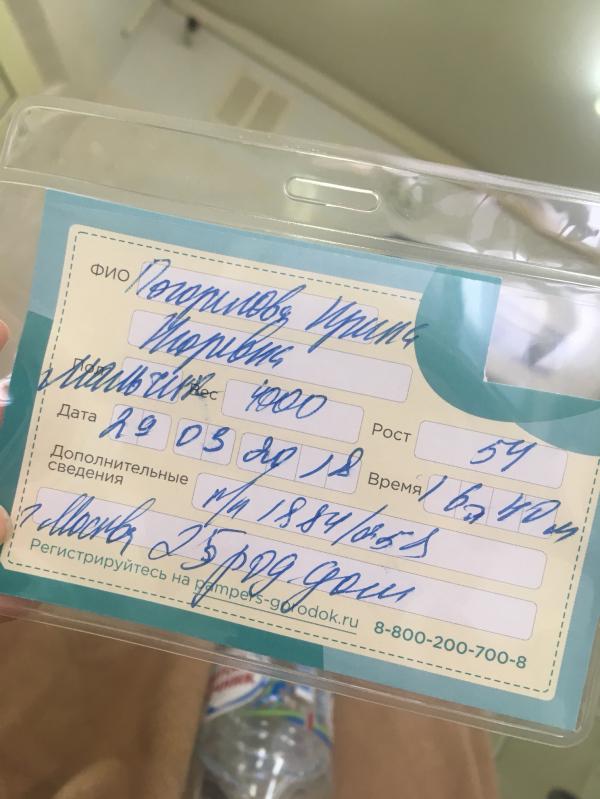 ФИО Погорилова Ирина
Игоривна
Пол Мальчик Вес 4000 Рост 54
Дата 29 03 2018 Время 16ч 40м
Дополнительные
сведения
г. Москва 25 род. дом
Регистрируйтесь на pampers-gorodok.ru 8-800-200-700-8